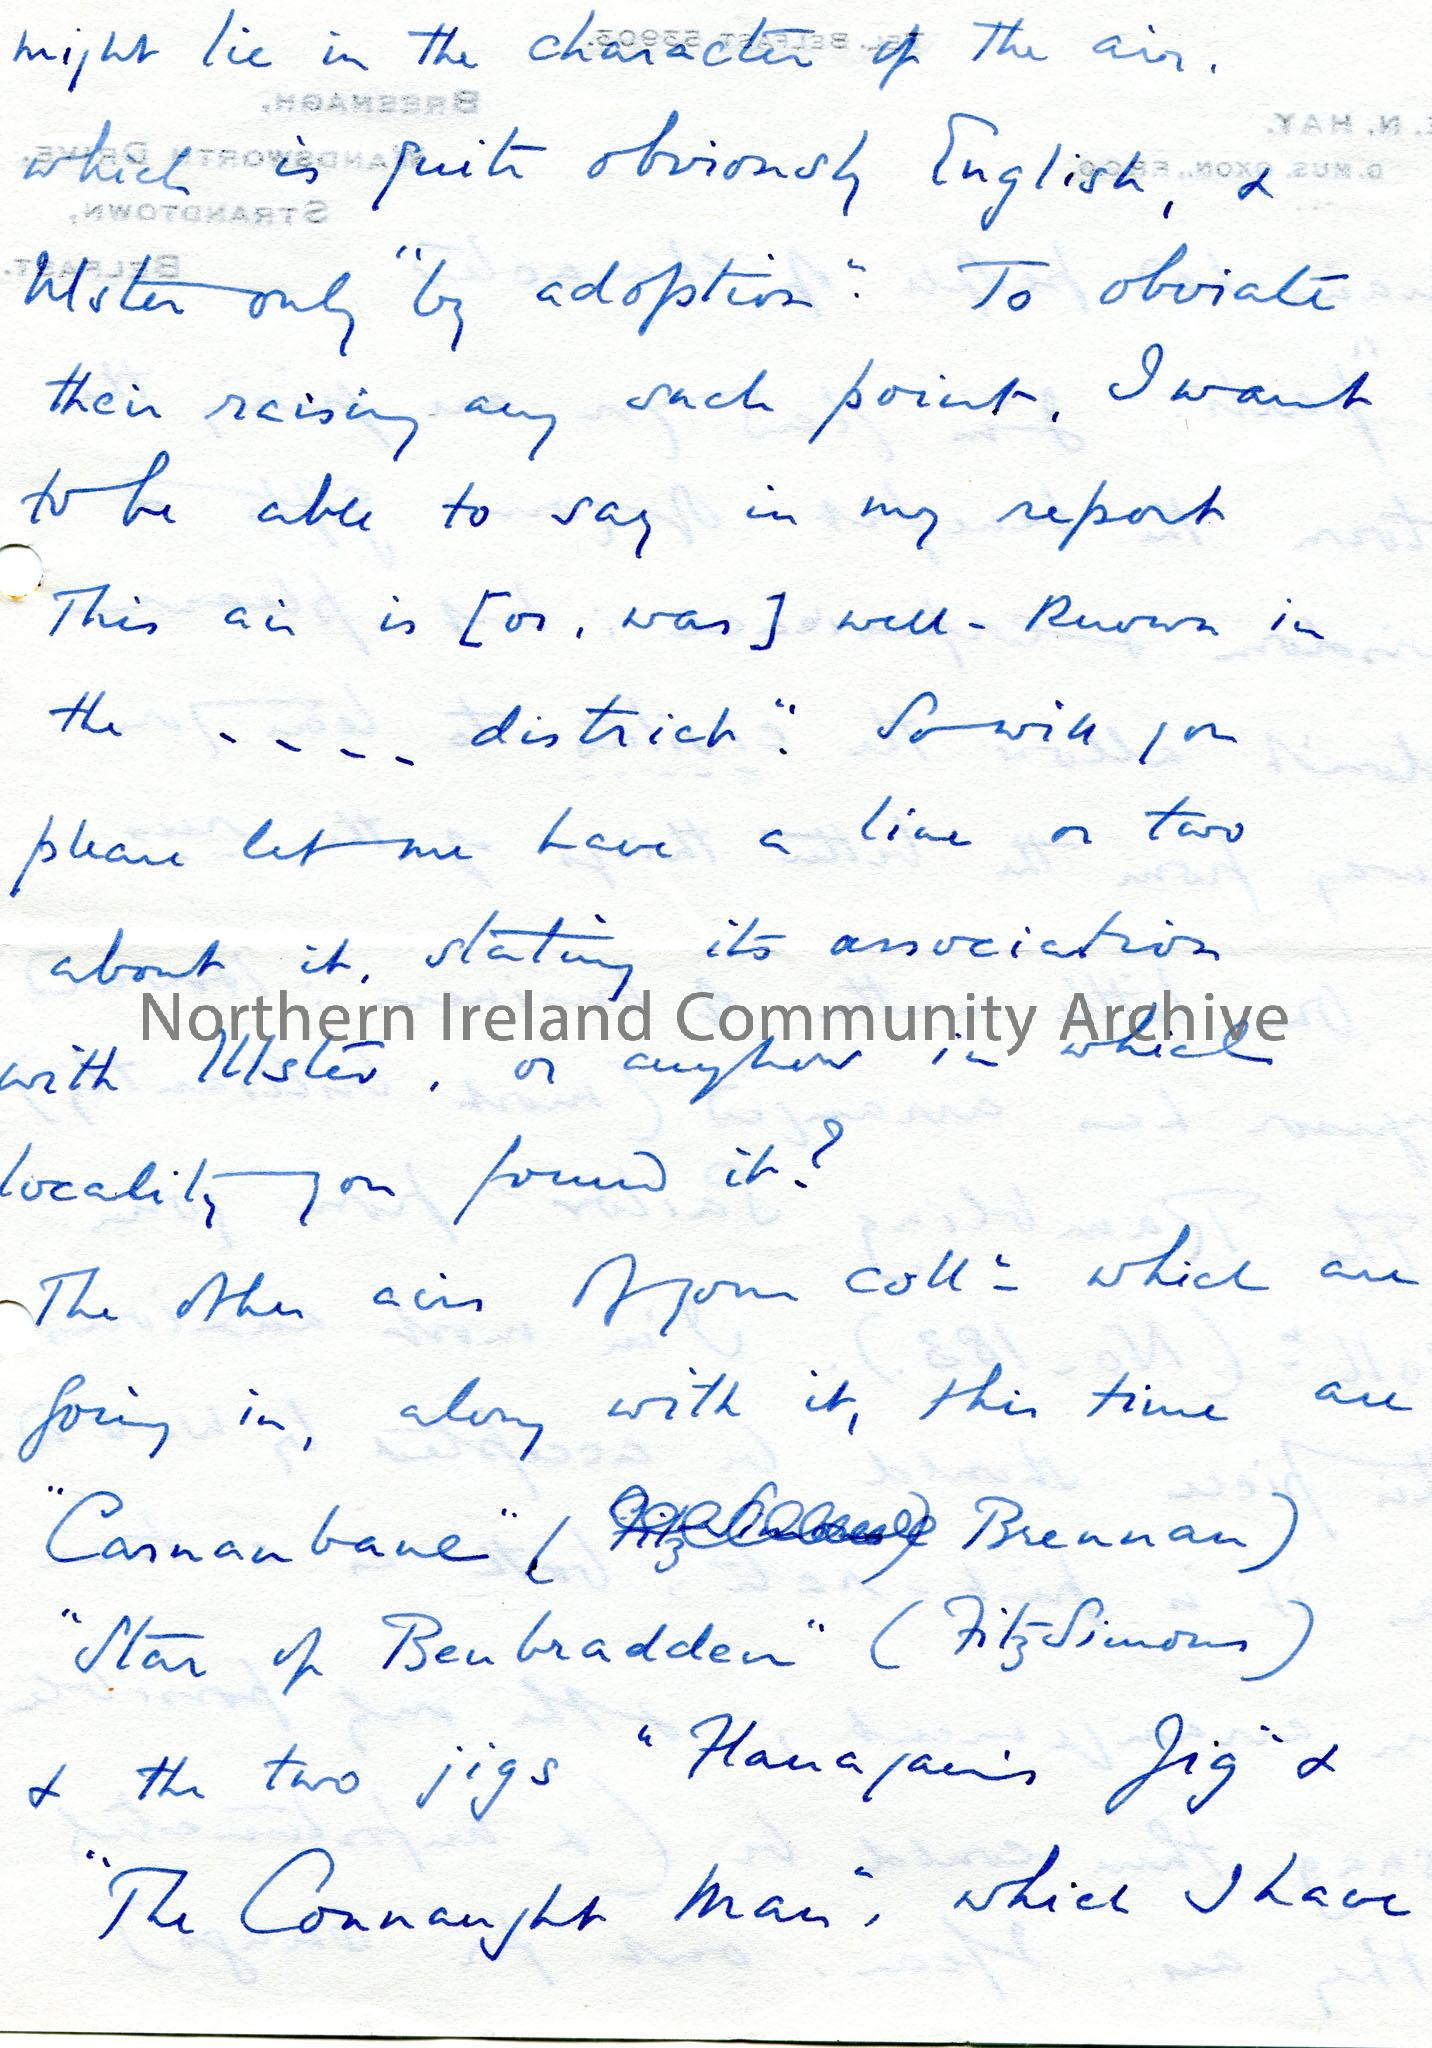 might lie in the character of the air.
which is quite obviously English, &
Ulster only "by adoption". To obviate
their raising any such point, I want
to be able to say in my report
This air is [or, was] well-known in
the - - - - district". So will you
please let me have a line or two
about it, stating its association
Northern Ireland Community Archive
with Ulster, or anyhow in which
locality you found it?
The other airs of your colln which are
going in, along with it, this time are
"Carnanbane" ( Brennan)
"Star of Benbradden" (FitzSimons)
& the two jigs " Jig" &
"The Connaught Man", which I have
TEL. BELFAST 53903.
BRESNAGH,
WANDSWORTH DRIVE,
STRANDTOWN,
BELFAST.
E. N. HAY.
D. MUS. OXON., F.R.C.O.